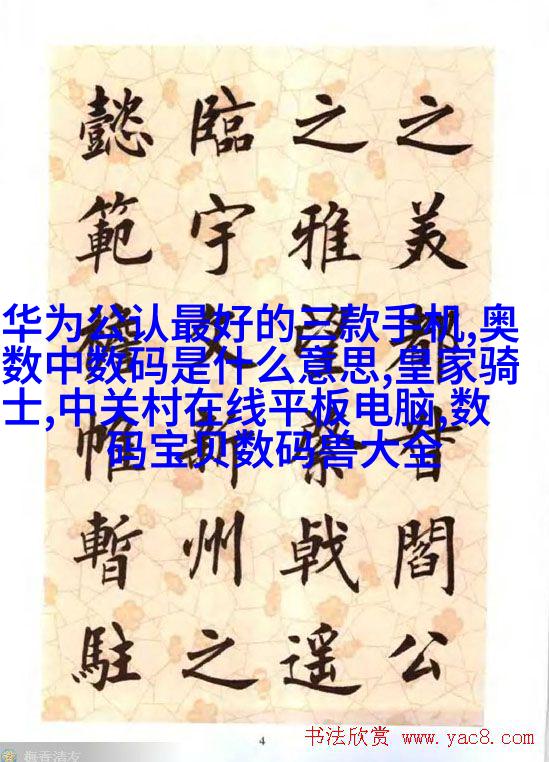 之美都督閻公
之雅望棨戟遥
臨宇文新州之
懿範襜帷暫駐
华为公认最好的三款手机,奥
数中数码是什么意思,皇家骑
士,中关村在线平板电脑,数
码宝贝数码兽大全
4
书法欣赏 www.yac8.com